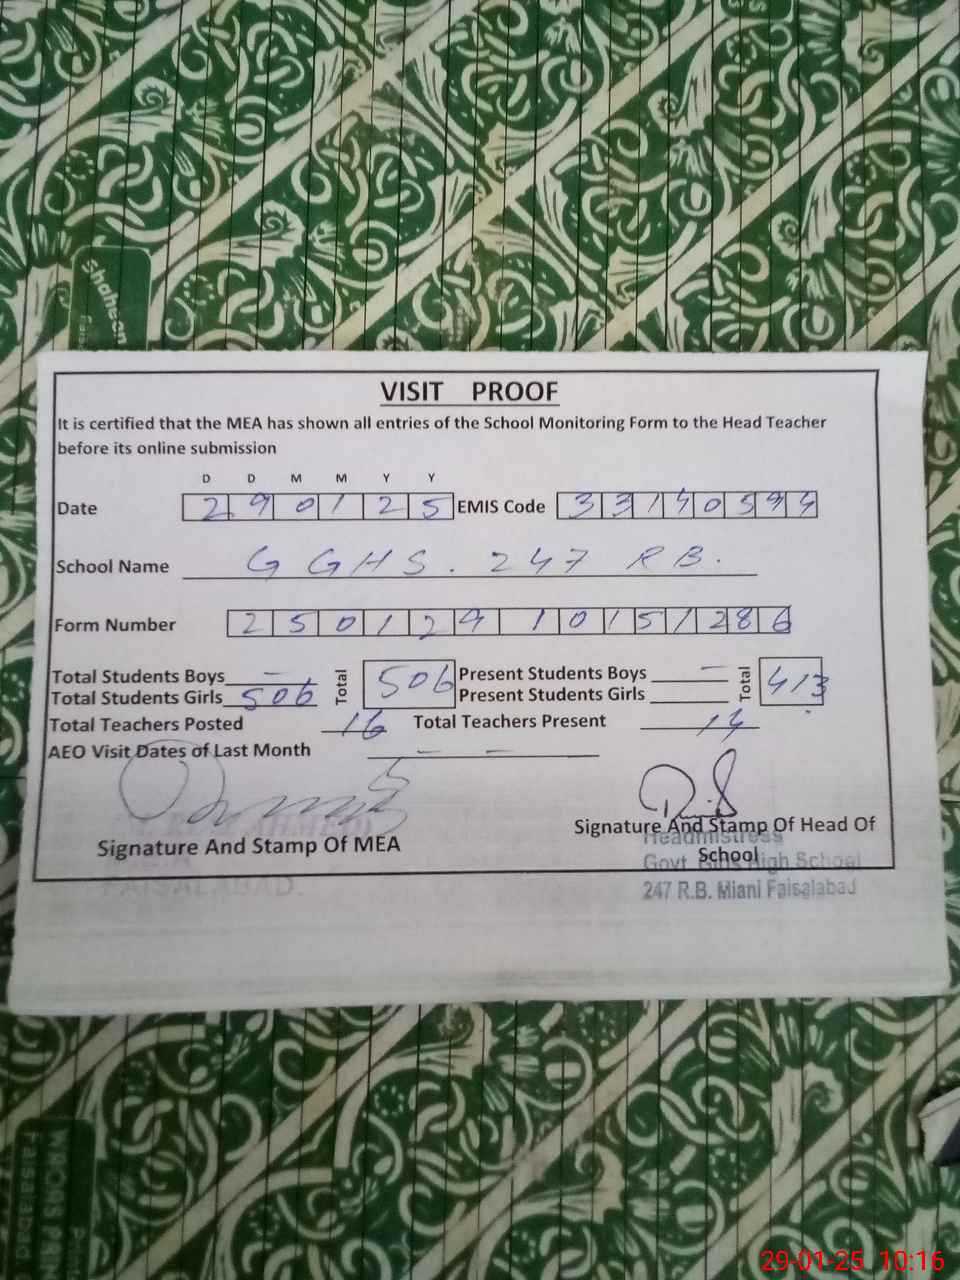 shaheen
VISIT PROOF
It is certified that the MEA has shown all entries of the School Monitoring Form to the Head Teacher
before its online submission
D D M M Y Y
Date 2 9 0 1 2 5 EMIS Code 3 3 1 4 0 5 9 4
School Name G GHS. 247 RB.
Form Number 2 5 0 1 2 9 1 0 1 5 1 2 8 6
Total Students Boys — Total 506 Present Students Boys — Total 413
Total Students Girls 506 Present Students Girls
Total Teachers Posted 16 Total Teachers Present 14
AEO Visit Dates of Last Month — —
Signature And Stamp Of MEA
FAISALABAD.
Signature And Stamp Of Head Of
School
Headmistress
Govt Girls High School
247 R.B. Miani Faisalabad
29-01-25 10:16